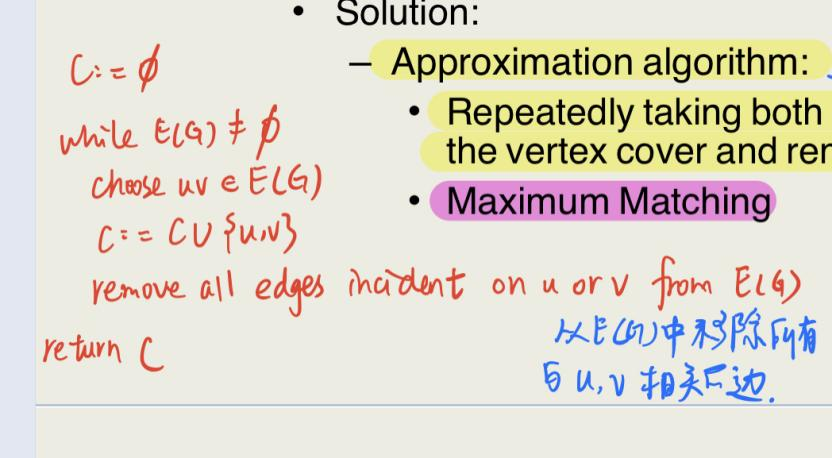 • Solution:
– Approximation algorithm:
• Repeatedly taking both
the vertex cover and rem
• Maximum Matching
C := ∅
while E(G) ≠ ∅
choose uv ∈ E(G)
C := C ∪ {u,v}
remove all edges incident on u or v from E(G)
return C
从E(G)中移除所有
与 u, v 相关的边.